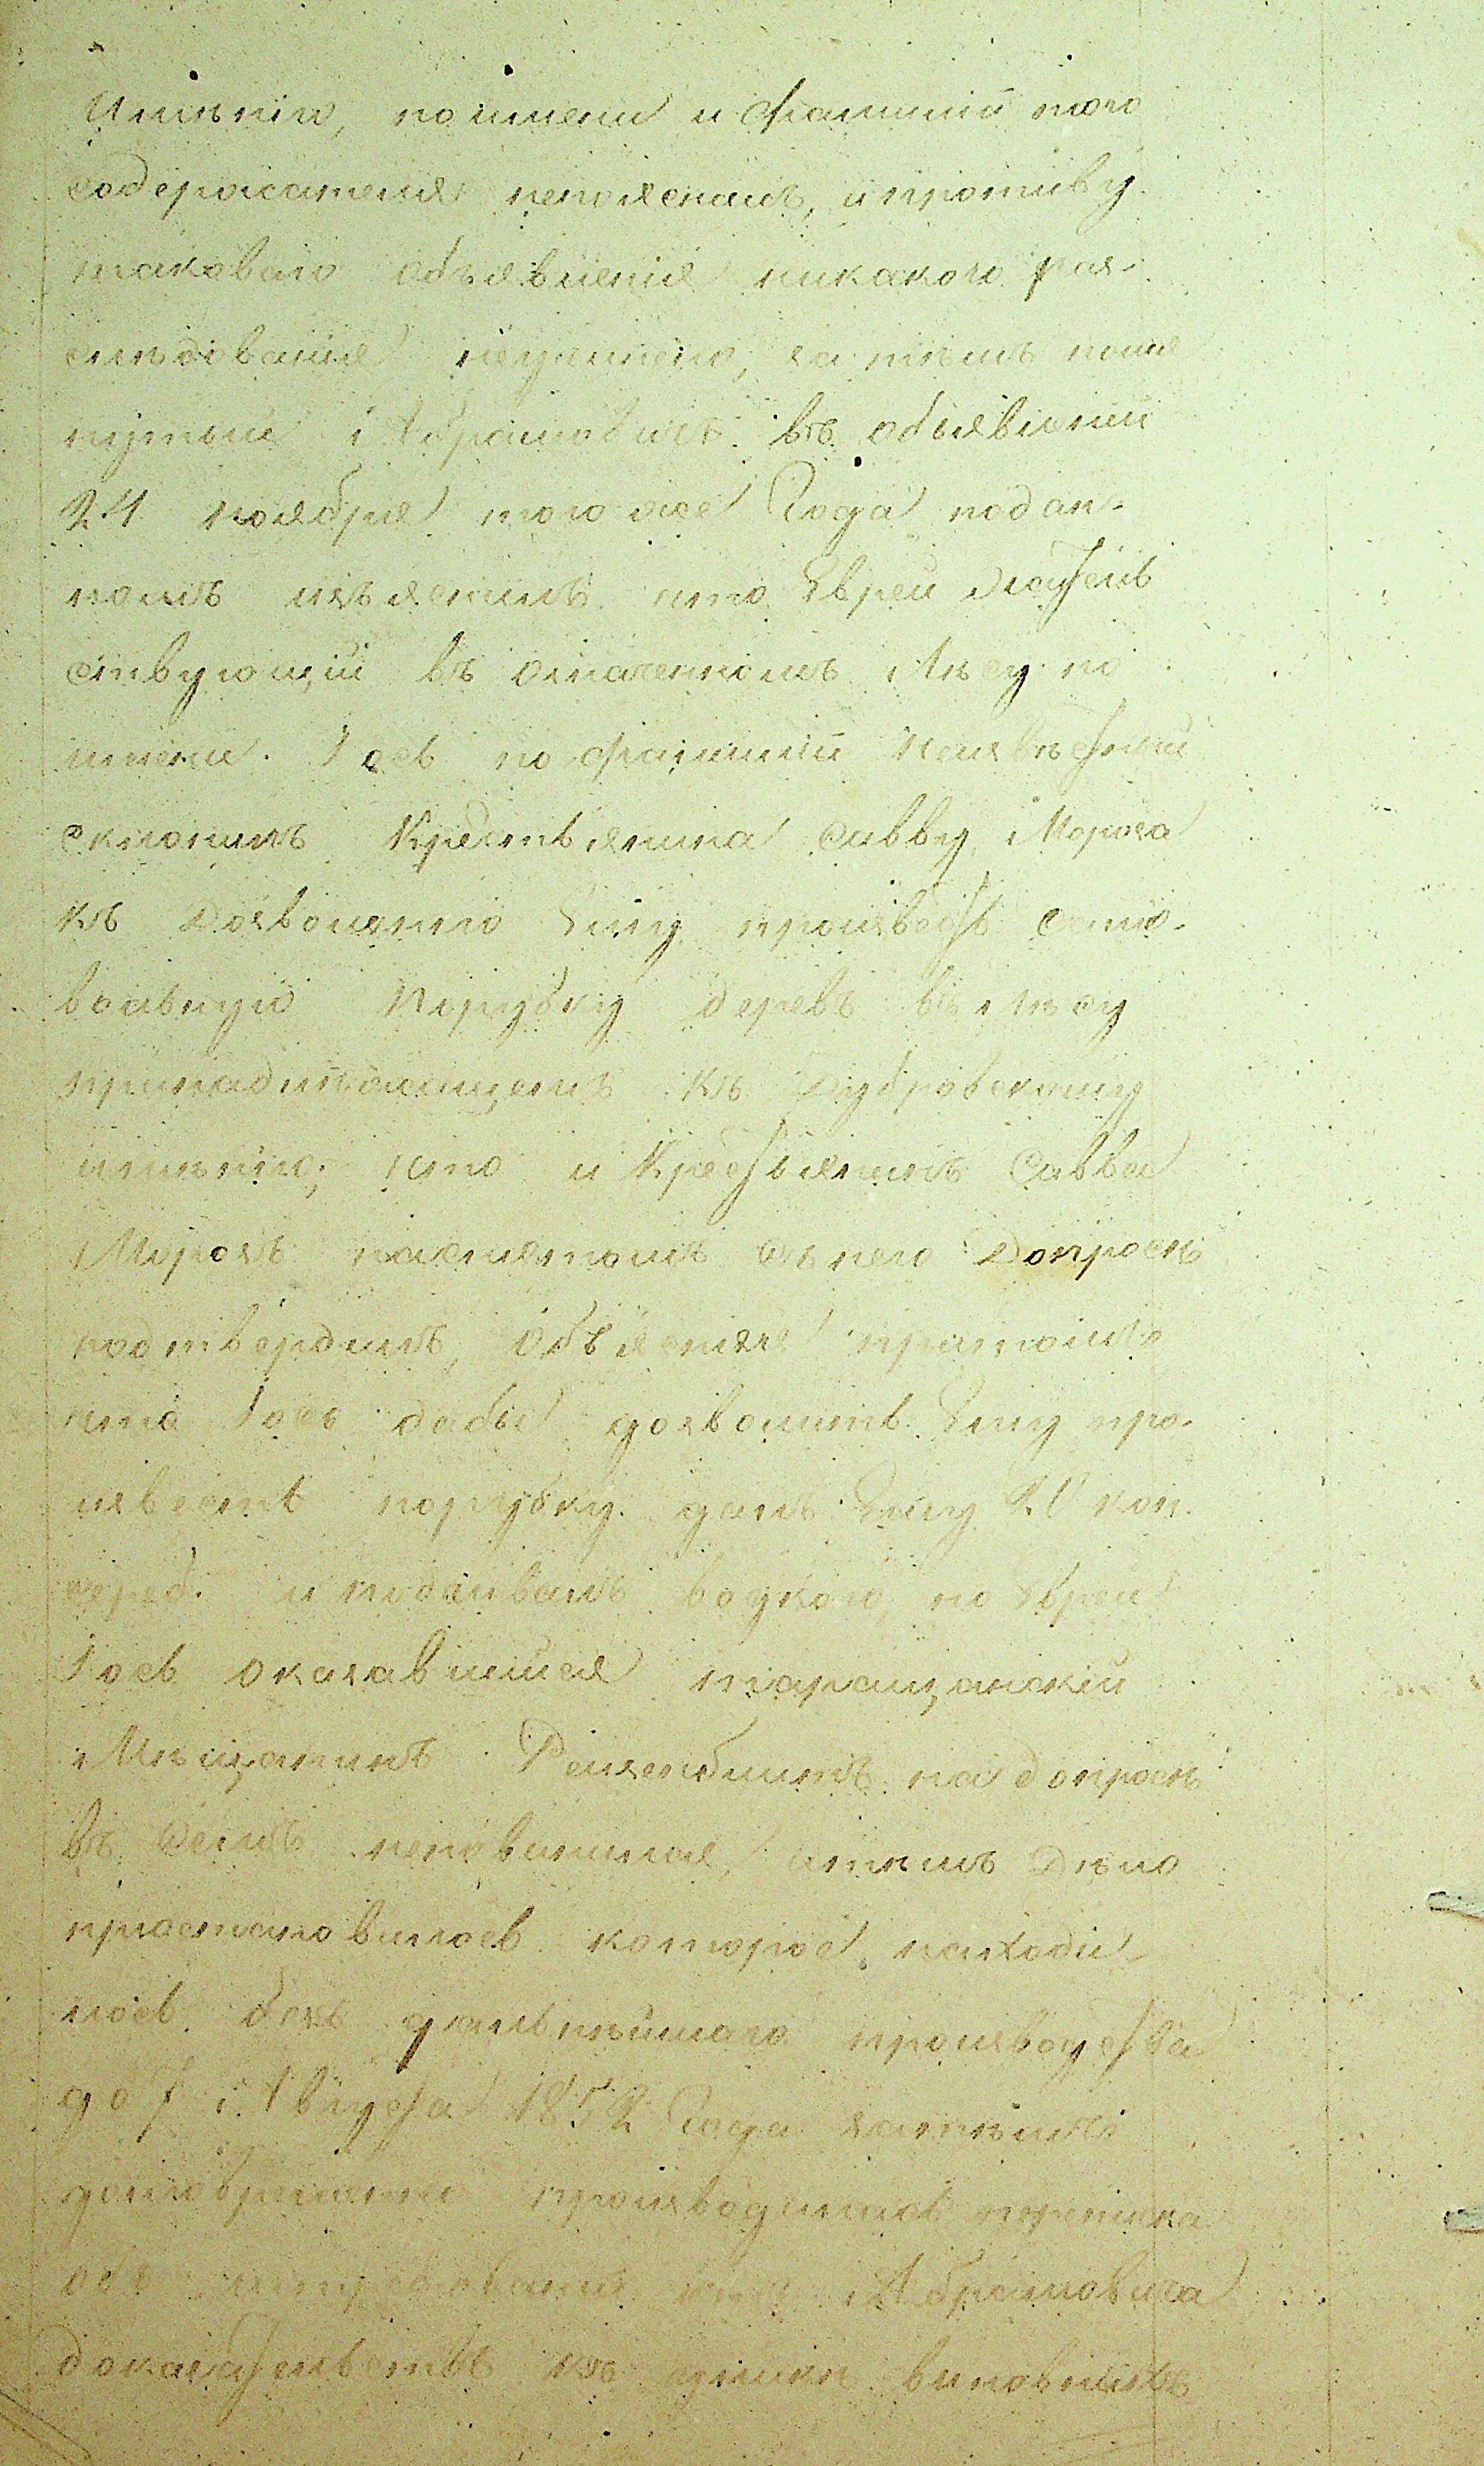 имѣнію, по имени и фамиліи того
содержателя непояснилъ, и противу
таковаго объявленія никакого раз-
слѣдованія неучинено, за тѣмъ помя
нутый Абрамовичъ въ объявленіи
24 ноября того же Года подан-
номъ изъяснилъ что Еврей жител
ствующій въ означенномъ лѣсу по
имени Іось по фамиліи неизвѣстный
склонилъ Крестьянина Савву Мороза
къ дозволенію Ему произвесть само-
вольную порубку деревъ въ лѣсу
принадлежащемъ къ Дубровскому
имѣнію, что и Крестьянинъ Савва
Морозъ наснятомъ съ него допросѣ
подтвердилъ, объясняя притомъ
что Іось дабы дозволить Ему про-
известь порубку далъ Ему 20 коп.
сереб. и подпивалъ водкой, но Еврей
Іось оказавшійся таращанскій
Мѣщанинъ на допросѣ
въ семъ неповинился, итѣмъ дѣло
простановилось которое находи-
лось безъ дальнѣйшаго производства
до 7 Августа 1852 Года затѣмъ
долговременно производилась переписка
объ истребованіи отъ Абрамовича
доказательствъ къ уликѣ виновныхъ